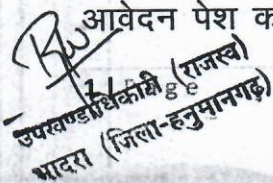 आवेदन पेश क
1 | P a g e
उपखण्डाधिकारी (राजस्व)
भादरा (जिला-हनुमानगढ़)